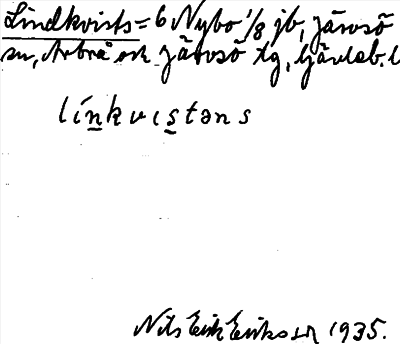 Lindkvists = 6 Nybo 1/8 jb, Järvsö
sn, Arbrå och Järvsö tg, Gävleb. l
línkvistəns
Nils Erik Eriksson 1935.